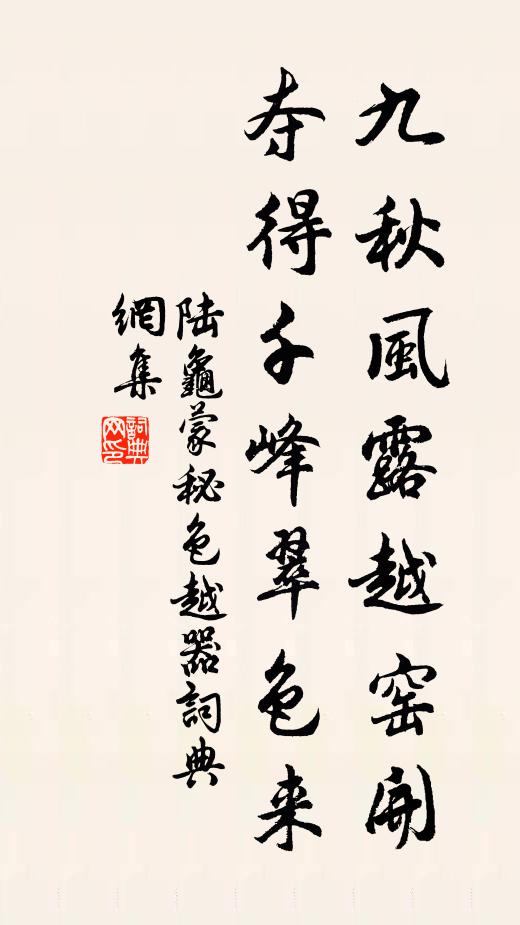 九秋風露越窑開
夺得千峰翠色来
陆龜蒙秘色越器詞典
網集
詞典
网印